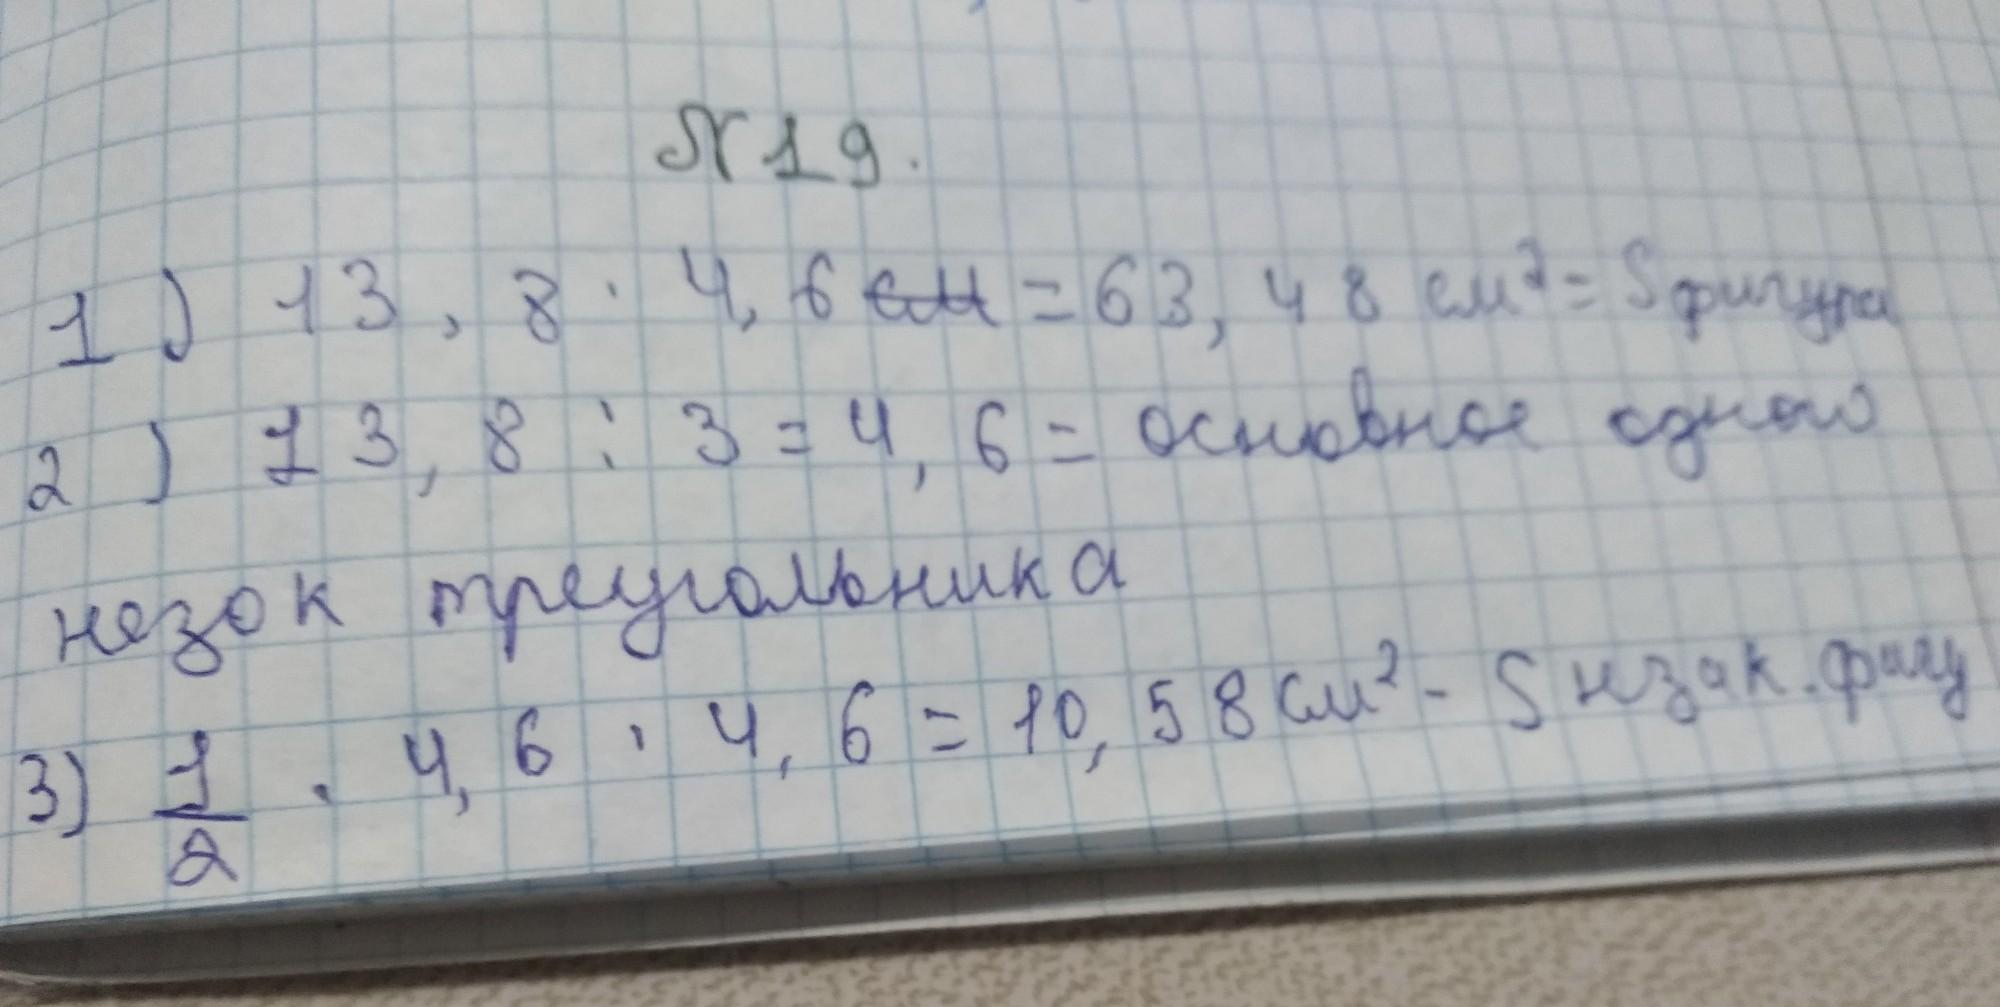 №19.
1) 13,8 · 4,6 см = 63,48 см² = S фигура
2) 13,8 : 3 = 4,6 = основное одного
незок треугольника
3) 1/2 · 4,6 · 4,6 = 10,58 см² - S нзак. фигу